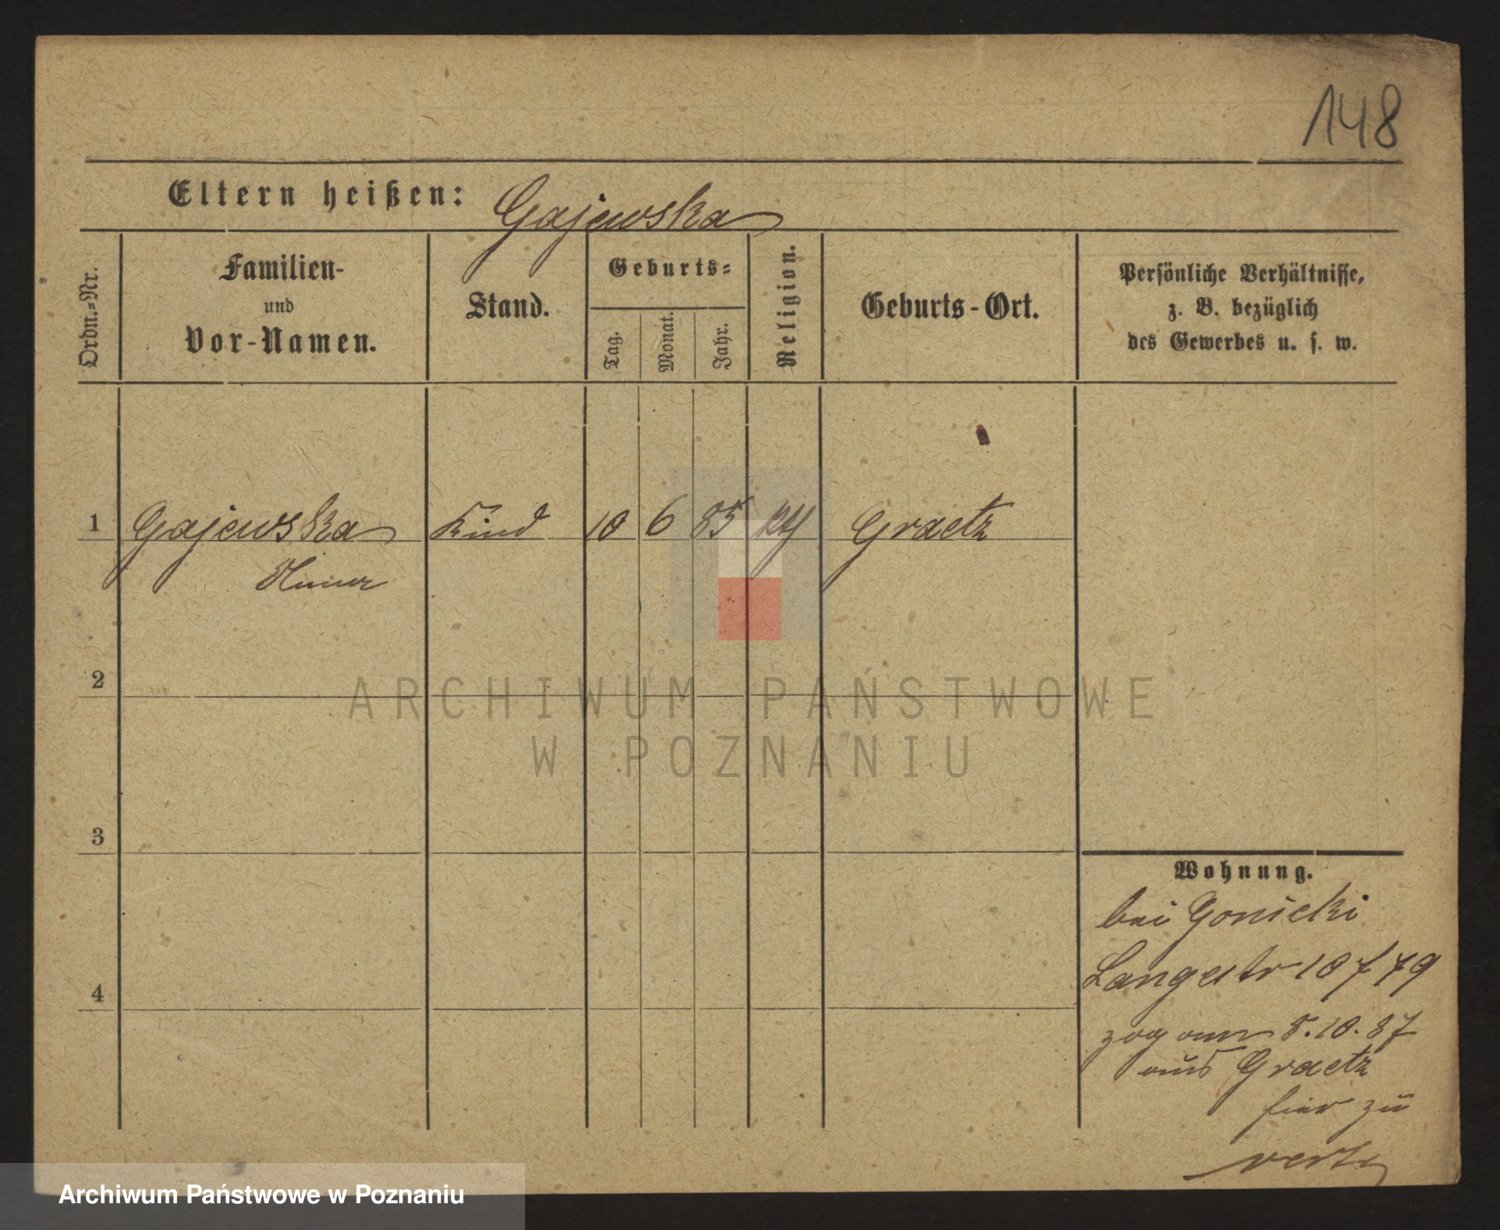 148
Eltern heißen: Gajewska
Ordn.-Nr.
Familien-
und
Vor-Namen.
Stand.
Geburts-
Tag.
Monat.
Jahr.
Religion.
Geburts-Ort.
Persönliche Verhältnisse,
z. B. bezüglich
des Gewerbes u. s. w.
1 Gajewska Kind 10 6 85 Graetz
2
3
4
Wohnung.
bei Gonicki
Langestr 10
zog am 5.10.87
aus Graetz
hier zu
verte
ARCHIWUM PAŃSTWOWE
W POZNANIU
Archiwum Państwowe w Poznaniu